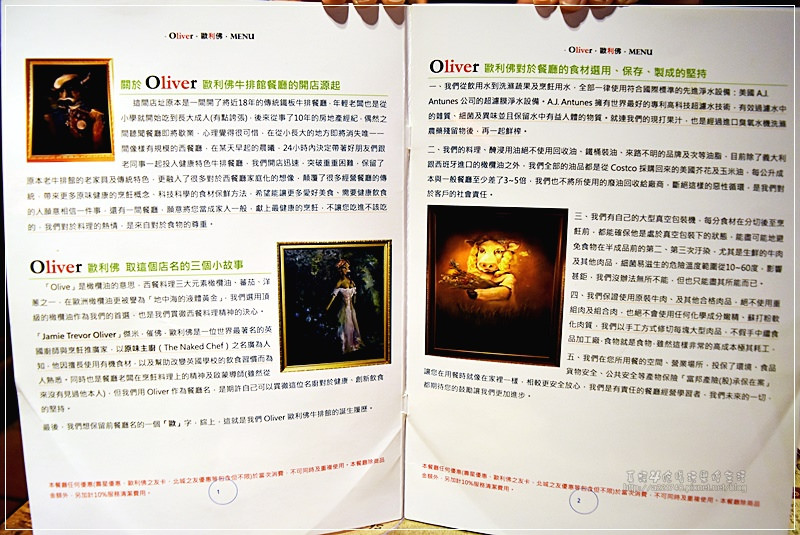 Oliver · 歐利佛 · MENU
關於 Oliver 歐利佛牛排館餐廳的開店源起
這間店址原本是一間開了將近18年的傳統鐵板牛排餐廳，年輕老闆也是從
小學就開始吃到長大成人(有點誇張)，後來從事了10年的房地產經紀，偶然之
間聽聞餐廳即將歇業，心理覺得很可惜，在從小長大的地方即將消失唯一一
間像樣有規模的西餐廳，在某天早起的晨曦，24小時內決定帶著好朋友們跟
老同事一起投入健康特色牛排餐廳，我們開店迅速，突破重重困難，保留了
原本老牛排館的老家具及傳統特色，更融入了很多對於西餐廳家庭化的想像，顛覆了很多經營餐廳的傳
統，帶來更多原味健康的烹飪概念，科技科學的食材保鮮方法，希望能讓更多愛好美食，需要健康飲食
的人願意相信一件事，還有一間餐廳，願意將您當成家人一般，獻上最健康的烹飪，不讓您吃進不該吃
的，我們對於料理的熱情，是來自對於食物的尊重。
Oliver 歐利佛 取這個店名的三個小故事
「Olive」是橄欖油的意思，西餐料理三大元素橄欖油、蕃茄、洋
蔥之一，在歐洲橄欖油更被譽為「地中海的液體黃金」，我們選用頂
級的橄欖油作為我們的首選，也是我們貫徹西餐料理精神的決心。
「Jamie Trevor Oliver」傑米．催佛．歐利佛是一位世界最著名的英
國廚師與烹飪推廣家，以原味主廚（The Naked Chef）之名廣為人
知，他因擅長使用有機食材，以及幫助改變英國學校的飲食習慣而為
人熟悉。同時也是餐廳老闆在烹飪料理上的精神及啟蒙導師(雖然從
來沒有見過他本人)，但我們用 Oliver 作為餐廳名，是期許自己可以貫徹這位名廚對於健康、創新飲食
的堅持。
最後，我們想保留前餐廳名的一個「歐」字，綜上，這就是我們 Oliver 歐利佛牛排館的誕生履歷。
本餐廳任何優惠(壽星優惠，歐利佛之友卡，北城之友優惠等但含但不限)於當次消費，不可同時及重複使用。本餐廳除商品
金額外，另加計10%服務清潔費用。
1
Oliver · 歐利佛 · MENU
Oliver 歐利佛對於餐廳的食材選用、保存、製成的堅持
一、我們從飲用水到洗滌蔬果及烹飪用水，全部一律使用符合國際標準的先進淨水設備：美國 A.J.
Antunes 公司的超濾膜淨水設備。A.J. Antunes 擁有世界最好的專利高科技超濾水技術，有效過濾水中
的雜質、細菌及異味並且保留水中有益人體的物質。就連我們的現打果汁，也是經過進口臭氧水機洗滌
農藥殘留物後，再一起鮮榨。
二、我們的料理、醃浸用油絕不使用回收油、鐵桶裝油、來路不明的品牌及次等油脂，目前除了義大利
跟西班牙進口的橄欖油之外，我們全部的油品都是從 Costco 採購回來的美國芥花及玉米油，每公升成
本與一般餐廳至少差了3~5倍，我們也不將所使用的廢油回收給廠商，斷絕這樣的惡性循環，是我們對
於客戶的社會責任。
三、我們有自己的大型真空包裝機，每分食材在分切後至烹
飪前，都能確保他是處於真空包裝下的狀態，能盡可能地避
免食物在半成品前的第二、第三次汙染，尤其是生鮮的牛肉
及其他肉品，細菌易滋生的危險溫度範圍從10~60度，影響
甚鉅，我們沒辦法無所不能，但也只能盡其所能而已。
四、我們保證使用原裝牛肉、及其他合格肉品，絕不使用重
組肉及組合肉，也絕不會使用任何化學成分嫩精、蘇打粉軟
化肉質，我們以手工方式修切每塊大型肉品，不假手中繼食
品加工廠，食物就是食物，雖然這樣非常的高成本極其耗工。
五、我們在您所用餐的空間、營業場所，投保了環境、食品
貨物安全、公共安全等產物保險「富邦產險(股)承保在案」
讓您在用餐時就像在家裡一樣，相較更安全放心，我們是有責任的餐廳經營學習者，我們未來的一切，
都期待您的鼓勵讓我們更加進步。
本餐廳任何優惠(壽星優惠，歐利佛之友卡，北城之友優惠等但含但不限)於當次消費，不可同時及重複使用。本餐廳除商品
金額外，另加計10%服務清潔費用。
2